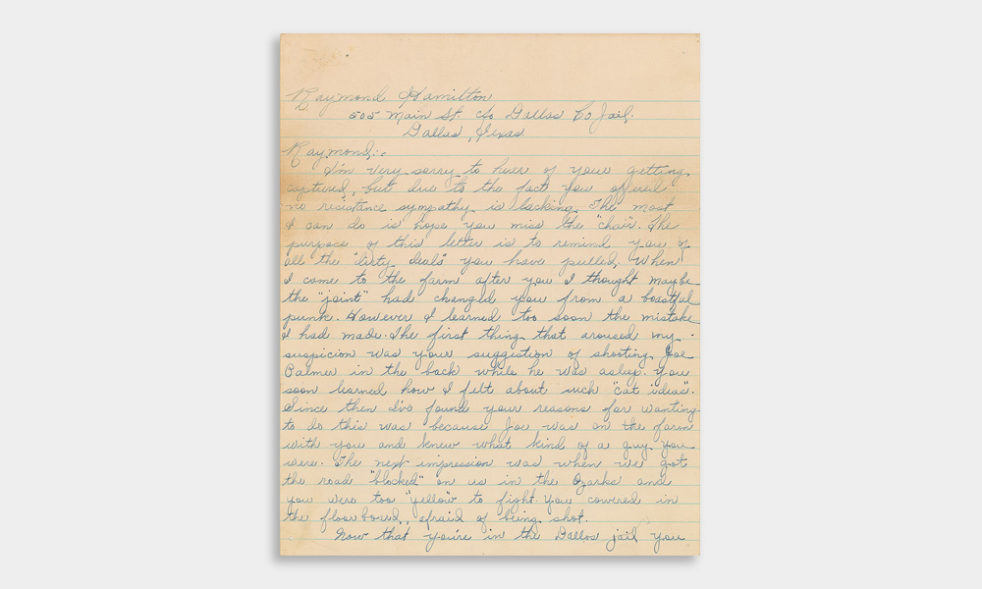 Raymond Hamilton
505 Main St. c/o Dallas Co Jail.
Dallas, Texas
Raymond:-
I'm very sorry to hear of your getting
captured, but due to the fact you offered
no resistance sympathy is lacking. The most
I can do is hope you miss the "chair". The
purpose of this letter is to remind you of
all the "dirty deals" you have pulled. When
I came to the farm after you I thought maybe
the "joint" had changed you from a boastful
punk. However I learned too soon the mistake
I had made. The first thing that aroused my
suspicion was your suggestion of shooting Joe
Palmer in the back while he was asleep. You
soon learned how I felt about such "cat ideas".
Since then I've found your reasons for wanting
to do this was because Joe was on the farm
with you and knew what kind of a guy you
were. The next impression was when we got
the road "blocked" on us in the Ozarks and
you were too "yellow" to fight. You cowered in
the floorboard, afraid of being shot.
Now that you're in the Dallas jail you